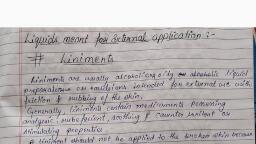 Liquids meant for external application :-
# Liniments
Liniments are usually alcoholic, oily or alcoholic liquid
preparations or emulsions intended for external use with
friction & rubbing of the skin.
Generally, liniments contain medicaments possessing
analgesic, rubefacient, soothing & counter irritant or
stimulating properties.
A liniment should not be applied to the broken skin because